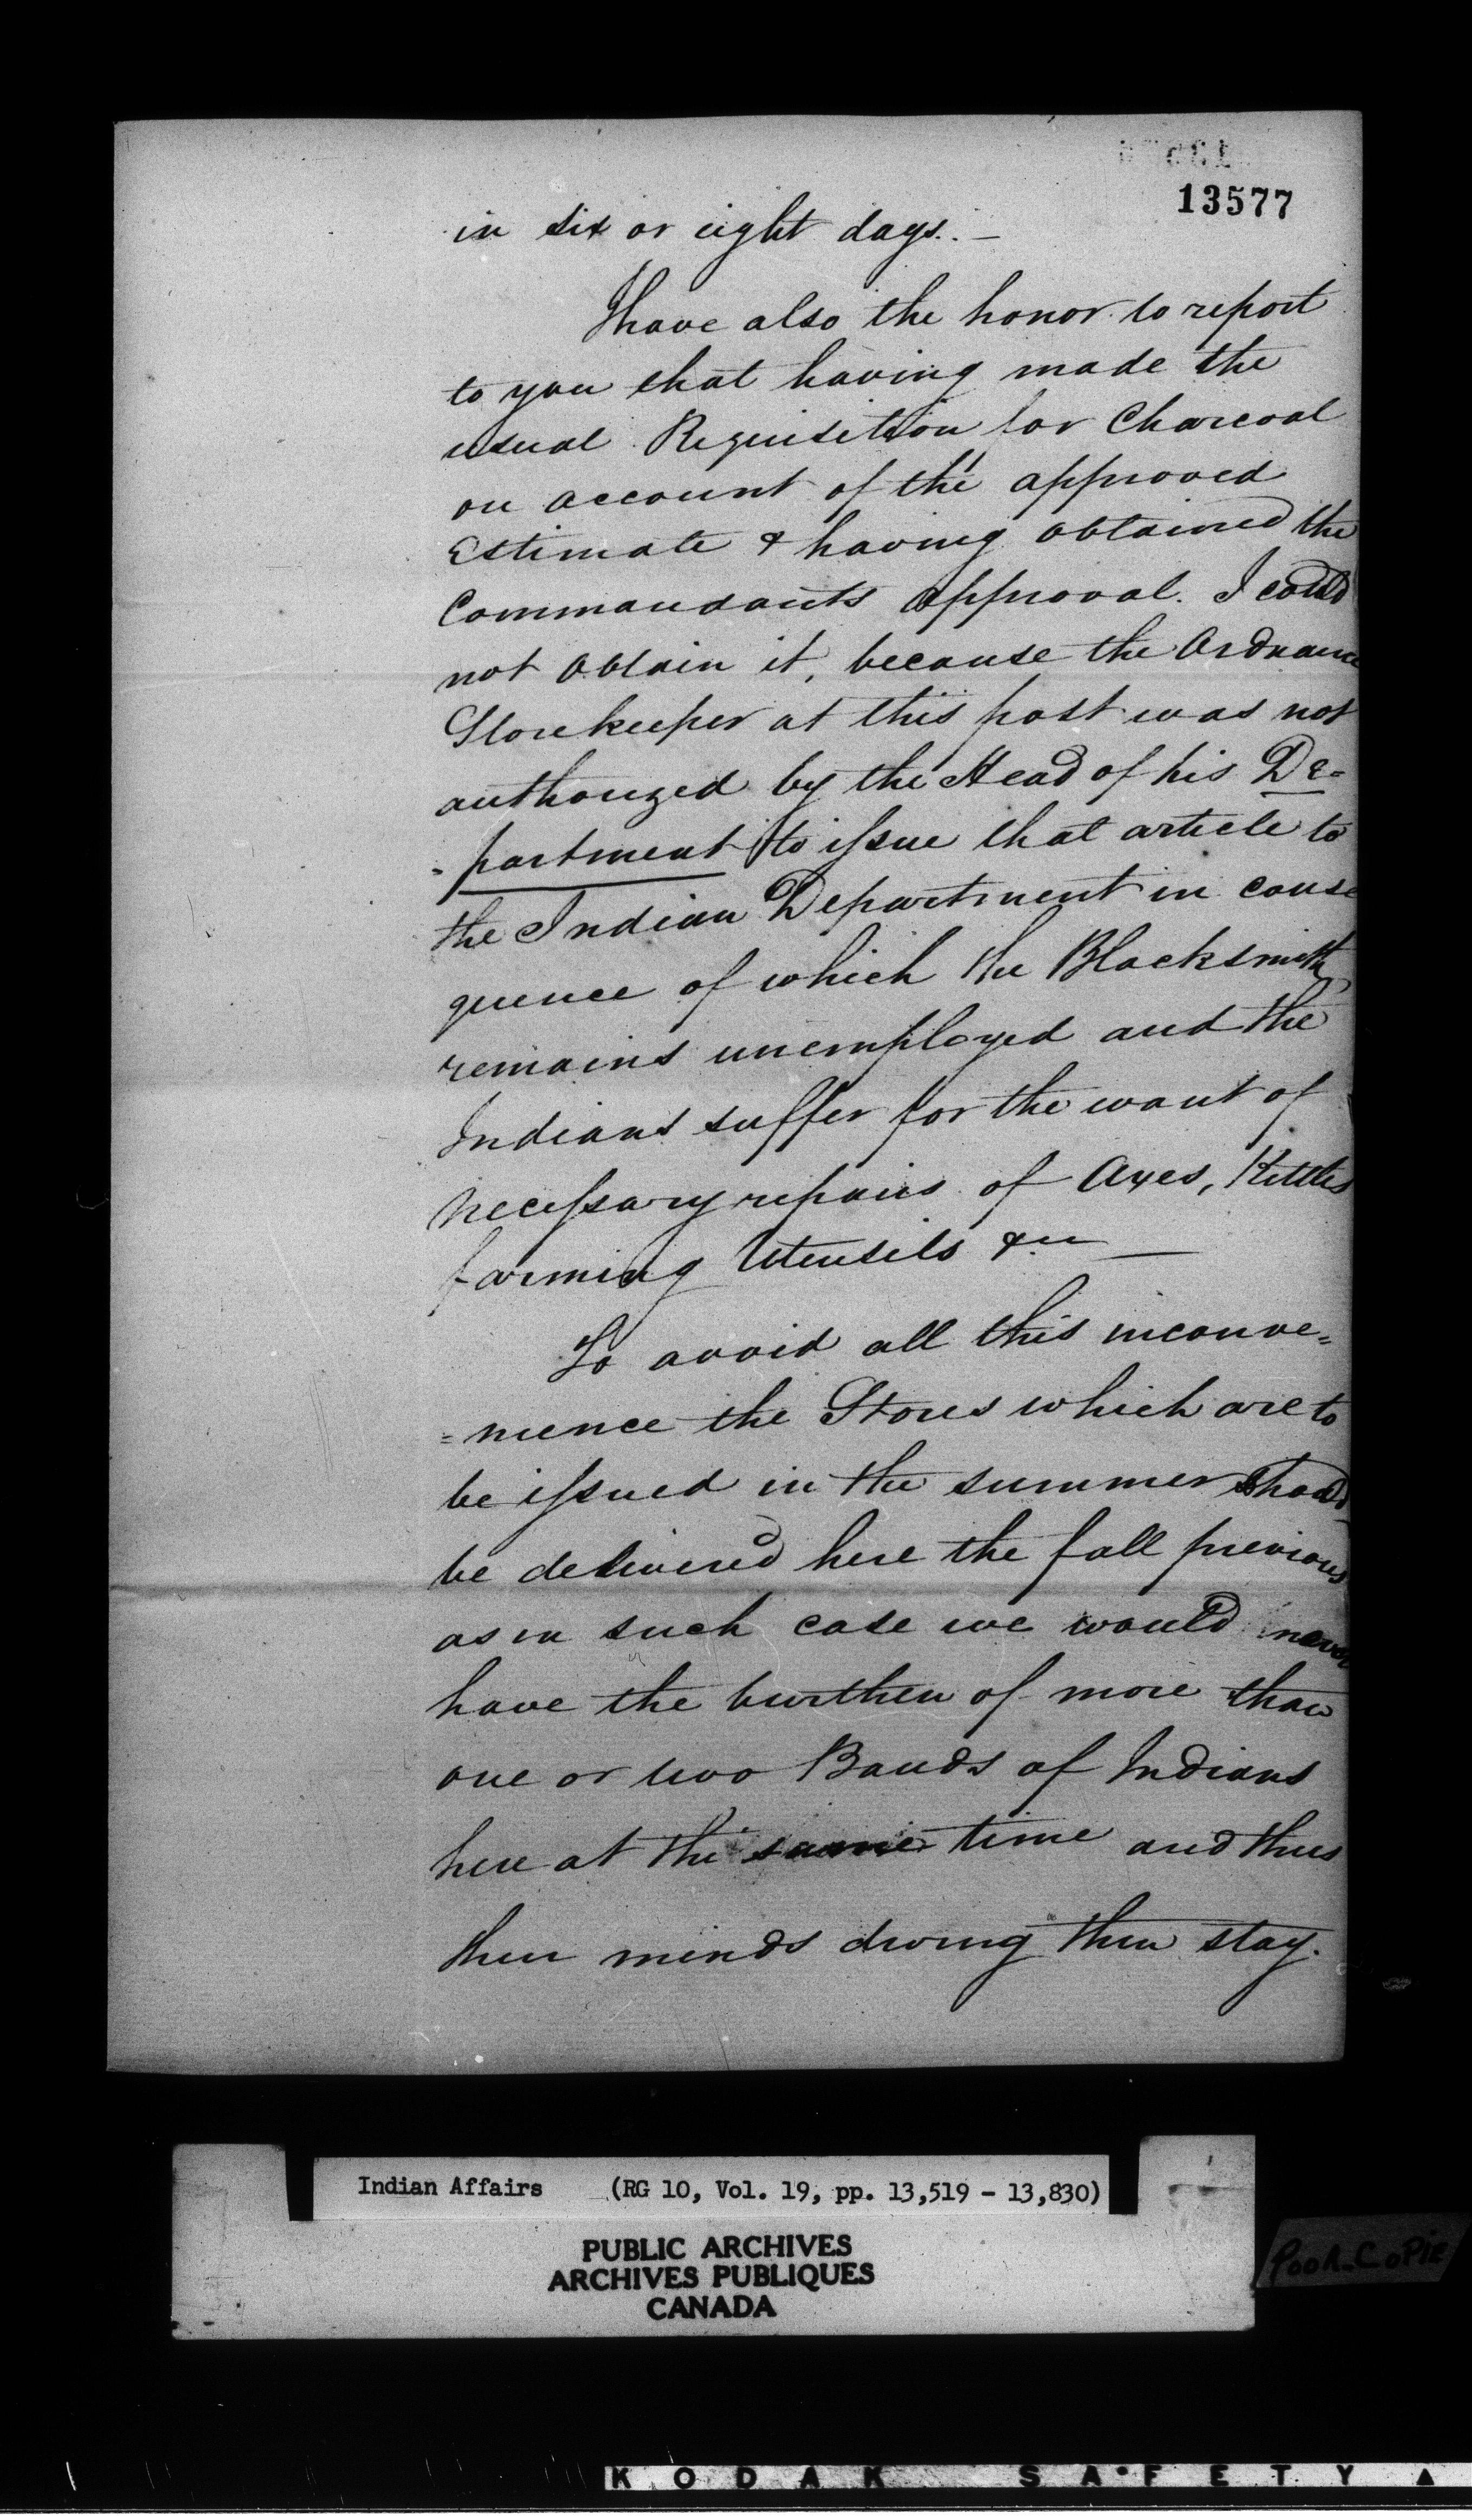 13577
in six or eight days. —
I have also the honor to report
to you that having made the
usual Requisition for Charcoal
on account of the approved
Estimate & having obtained the
Commandants approval. I could
not obtain it, because the Ordnance
Storekeeper at this post was not
authorized by the Head of his De=
=partment to issue that article to
the Indian Department in conse
quence of which the Blacksmith
remains unemployed and the
Indians suffer for the want of
necessary repairs of Axes, Kettles
farming Utensils &c —
To avoid all this inconve=
=nience the Stores which are to
be issued in the summer should
be delivered here the fall previous
as in such case we would never
have the burthen of more than
one or two Bands of Indians
here at the same time and thus
their minds during their stay.
Indian Affairs (RG 10, Vol. 19, pp. 13,519 - 13,830)
PUBLIC ARCHIVES
ARCHIVES PUBLIQUES
CANADA
Poor Copie
KODAK SAFETY